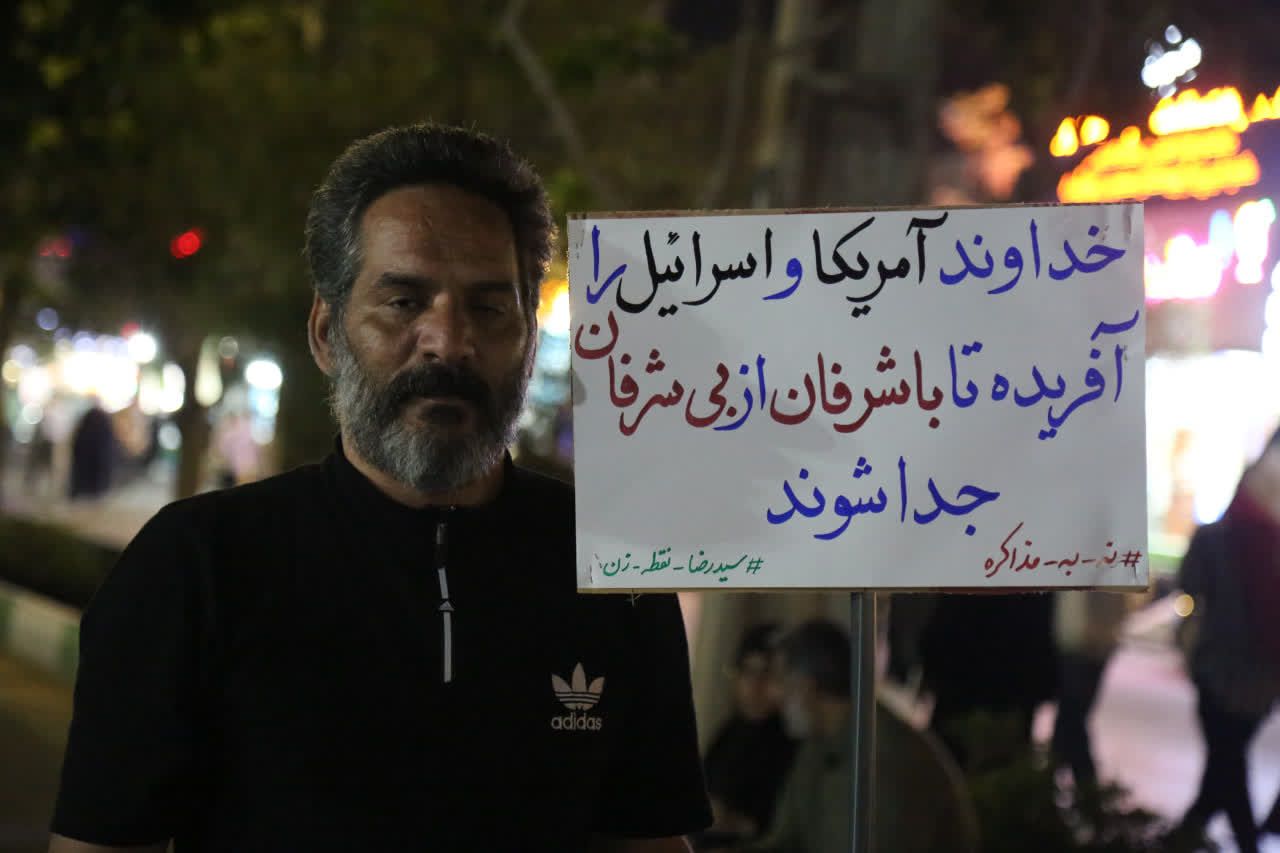 خداوند آمریکا و اسرائیل را
آفریده تا باشرفان از بی شرفان
جدا شوند
#نه-به-مذاکره
#سیدرضا-نقطه-زن
adidas